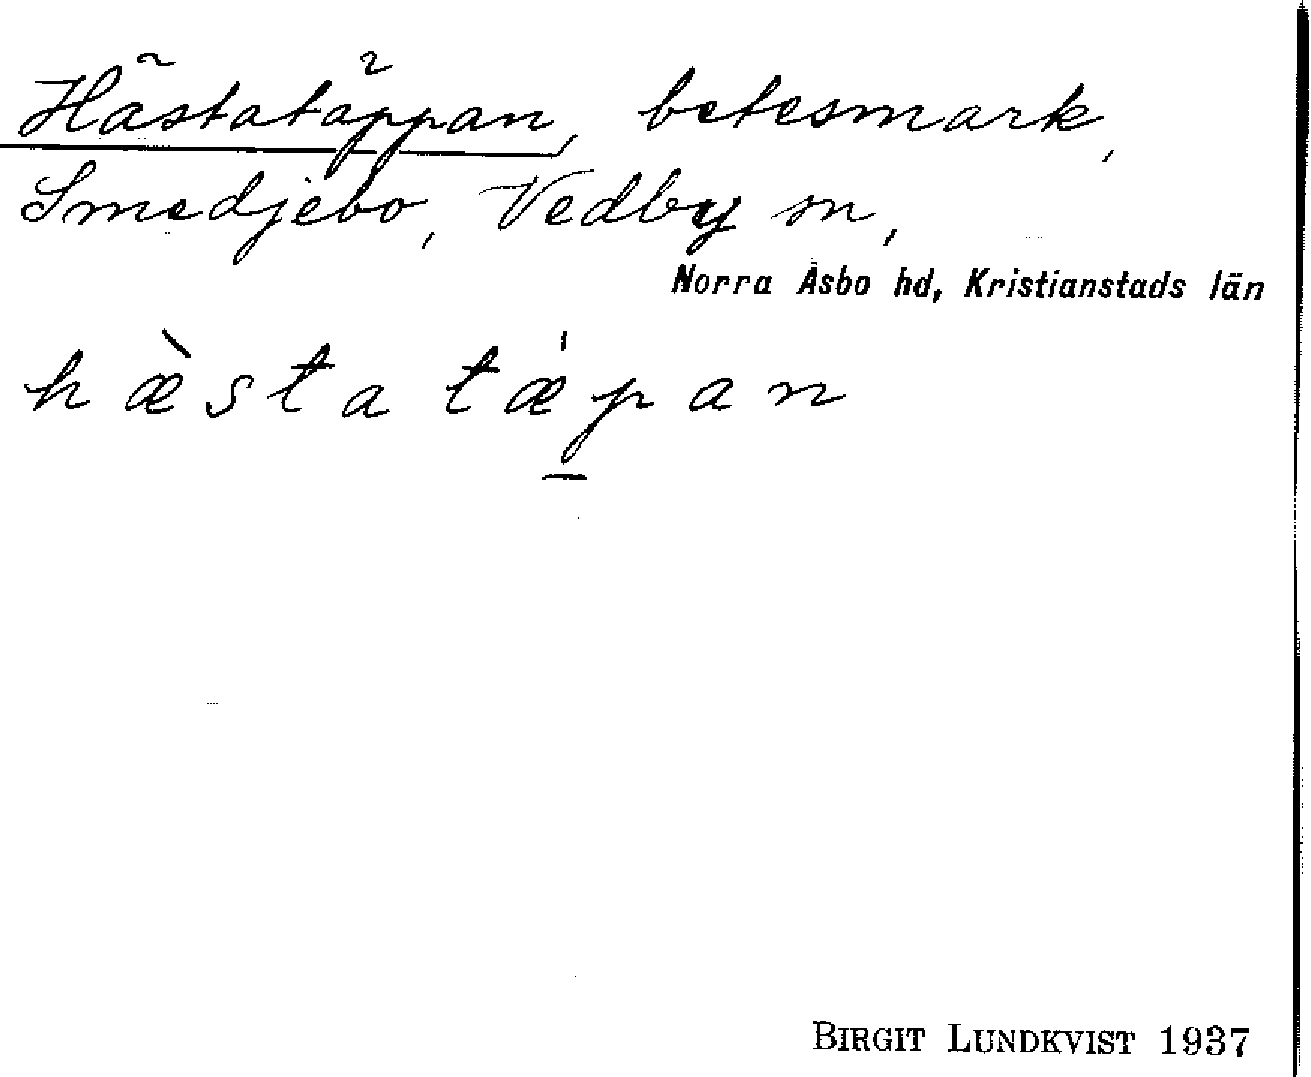 Hästatäppan, betesmark,
Smedjebo, Vedby sn,
Norra Åsbo hd, Kristianstads län
hæ̀sta tǽp̱an
BIRGIT LUNDKVIST 1937